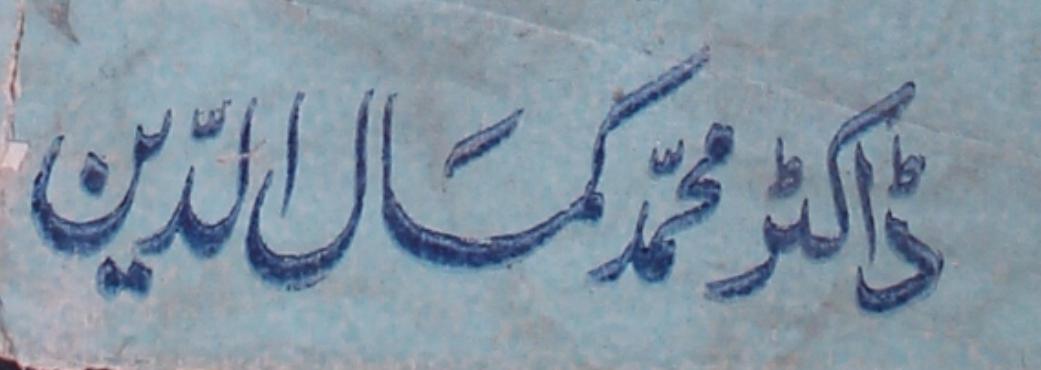 ڈاکٹر محمّد کمَال الدّین